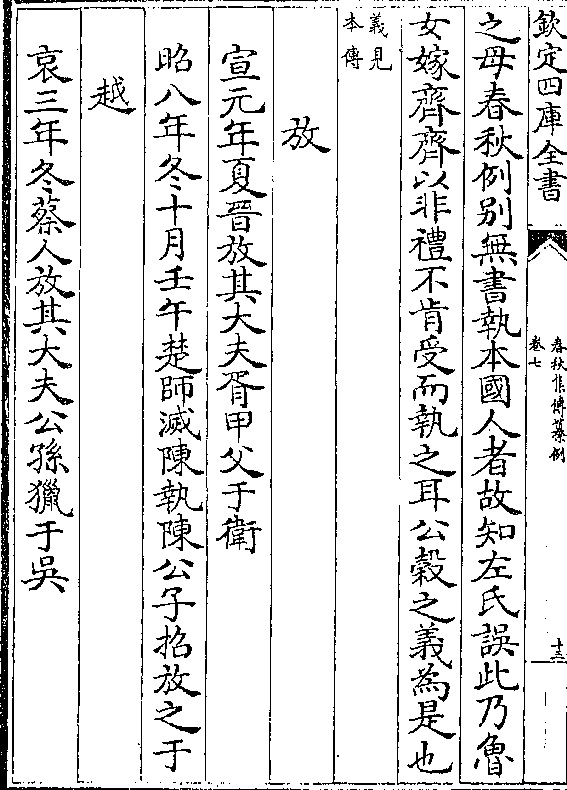 欽定四庫全書
春秋集傳纂例
卷七
十三
之母春秋例别無書執本國人者故知左氏誤此乃魯
女嫁齊齊以非禮不肯受而執之耳公穀之義為是也
義見
本傳
放
宣元年夏晉放其大夫胥甲父于衛
昭八年冬十月壬午楚師滅陳執陳公子招放之于
越
哀三年冬蔡人放其大夫公孫獵于吳